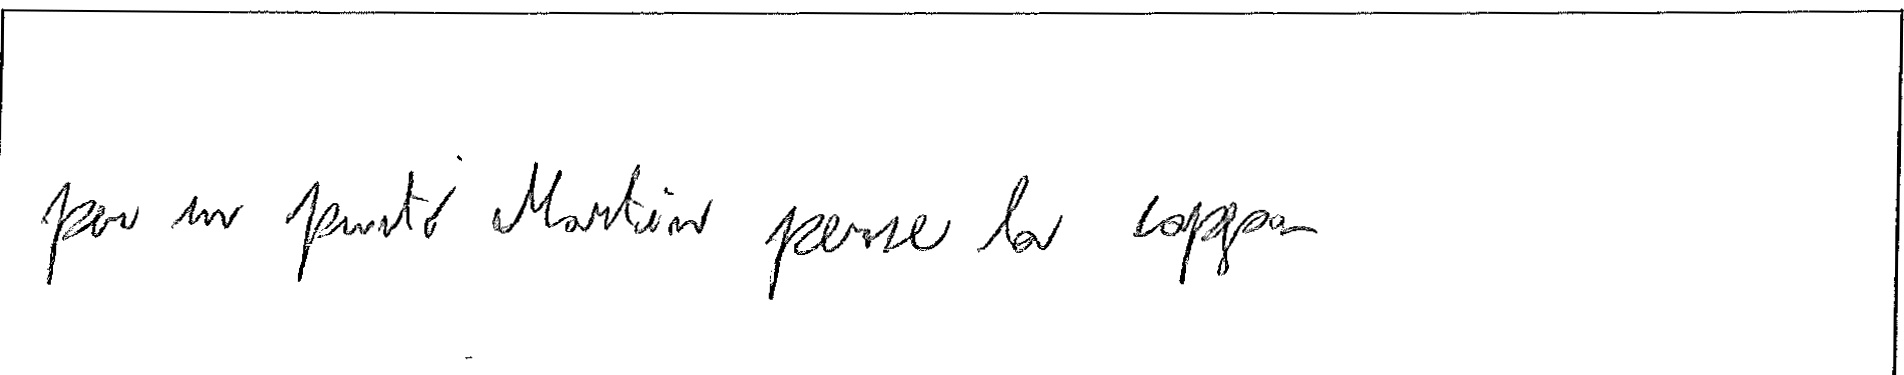 per un punto Martin perse la coppa